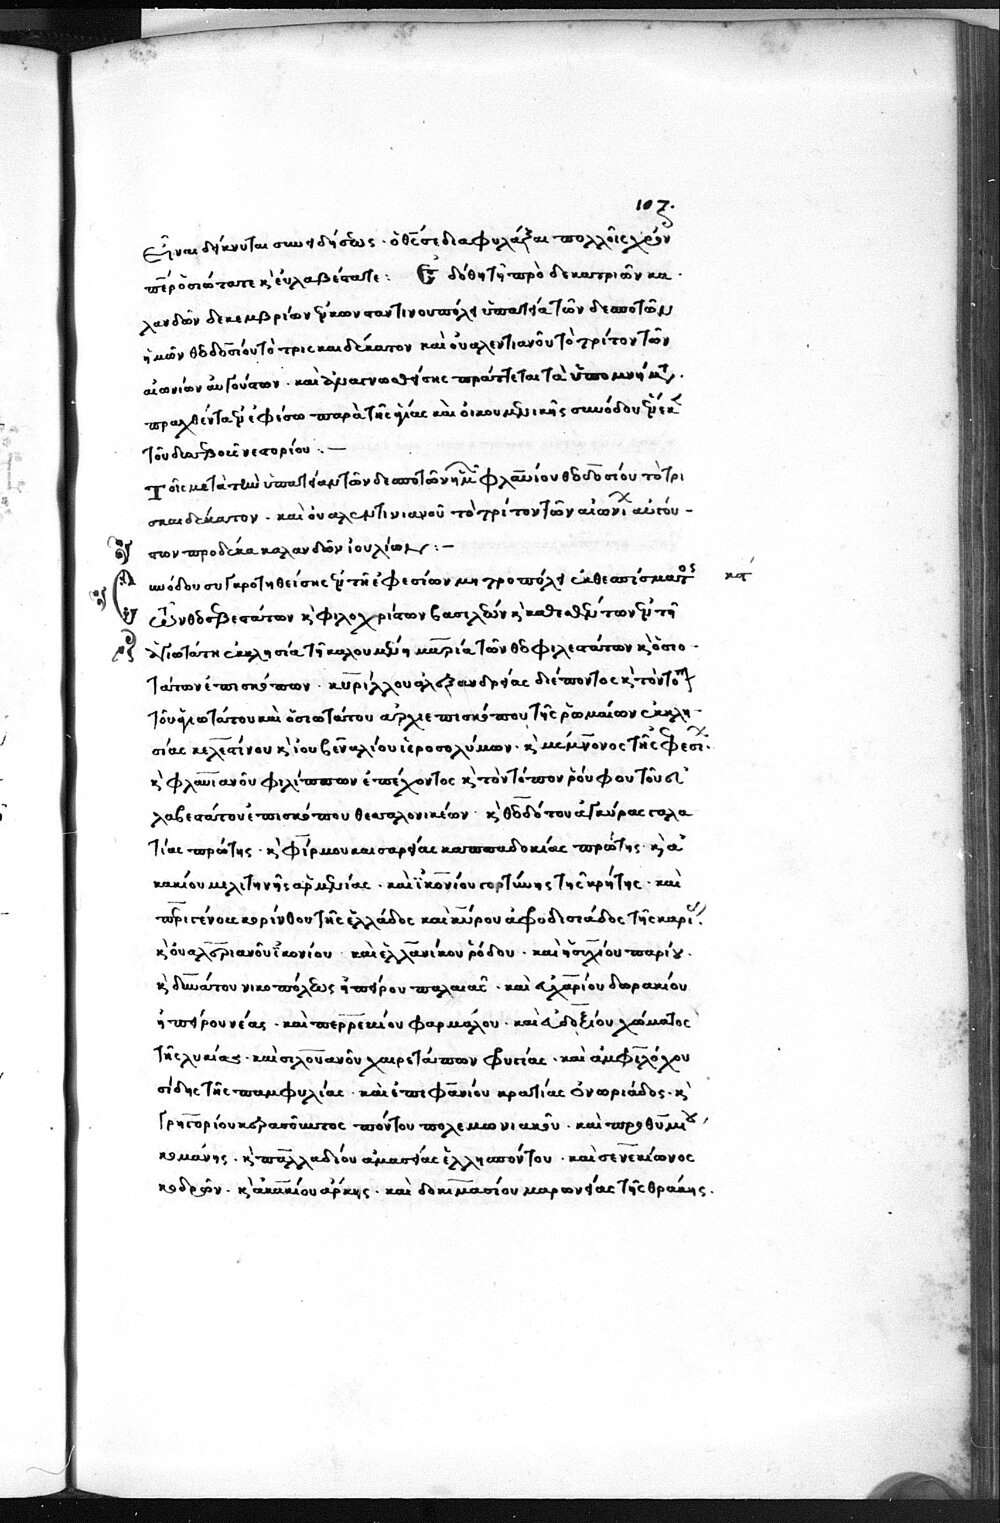 107.
εἶναι δείκνυται συνειδήσεως · ὁ θεός σε διαφυλάξαι πολλοῖς χρόνοις
ὁσιώτατε κ̀ εὐλαβέστατε : Ἐδόθη τῇ πρὸ δεκατριῶν κα
λανδῶν δεκεμβρίων ἐν κωνσταντινουπόλει ὑπατεία τῶν δεσποτῶν
ἡμῶν θεοδοσίου τὸ τρισκαιδέκατον καὶ οὐαλεντιανοῦ τὸ τρίτον τῶν
αἰωνίων αὐγούστων · καὶ ἀναγνωσθείσης πράττεται τὰ ὑπομνήματα
πραχθέντα ἐν ἐφέσω παρὰ τῆς ἁγίας καὶ οἰκουμενικῆς συνόδου ἕνεκεν
τοῦ δυσσεβοῦς νεστορίου : –
Τοῖς μετὰ τὴν ὑπατείαν τῶν δεσποτῶν ἡμῶν φλαυίου θεοδοσίου τὸ τρι
σκαιδέκατον · καὶ οὐαλεντινιανοῦ τὸ τρίτον τῶν αἰωνίων αὐγού-
στων προδέκα καλανδῶν ἰουλίων : –
συνόδου συγκροτηθείσης ἐν τῆ ἐφεσίων μητροπόλει ἐκ θεσπίσματος
κατ
τῶν θεοσεβεστάτων κ̀ φιλοχρίστων βασιλέων κ̀ καθεσθέντων ἐν τῆ
ἁγιωτάτη ἐκκλησία τῆ καλουμένη μαρία τῶν θεοφιλεστάτων κ̀ ὁσιο-
τάτων ἐπισκόπων · κυρίλλου ἀλεξανδρείας διέποντος κ̀ τὸν τόπον
τοῦ ἁγιωτάτου καὶ ὁσιωτάτου ἀρχιεπισκόπου τῆς ῥωμαίων ἐκκλη-
σίας κελεστίνου κ̀ ἰουβεναλίου ἱεροσολύμων · κ̀ μέμνονος τῆς ἐφεσίων
κ̀ φλαυιανοῦ φιλίππων ἐπέχοντος κ̀ τὸν τόπον ῥούφου τοῦ εὐ
λαβεστάτου ἐπισκόπου θεσσαλονικέων · κ̀ θεοδότου ἀγκύρας γαλα
τίας πρώτης · κ̀ φίρμου καισαρείας καππαδοκίας πρώτης · κ̀ ἀ
κακίου μελιτηνῆς ἀρμενίας · καὶ ἰκονίου γορτύνης τῆς κρήτης · καὶ
περιγένους κορίνθου τῆς ἑλλάδος καὶ κύρου ἀφροδισιάδος τῆς καρίας
κ̀ οὐαλεριανοῦ ἰκονίου · καὶ ἑλλανίκου ῥόδου · καὶ ἡσυχίου παρίου
κ̀ δυνάτου νικοπόλεως ἠπείρου παλαιᾶς · καὶ εὐχαρίου δυρακίου
ἠπείρου νέας · καὶ περρεκίου φαρμάλου · καὶ εὐδοξίου χώματος
τῆς λυκίας · καὶ σιλουανοῦ χαιρετάπων φρυγίας · καὶ ἀμφιλόχου
σίδης τῆς παμφυλίας · καὶ ἐπιφανίου κρατίας ὀνωριάδος · κ̀
γρηγορίου κερασοῦντος πόντου πολεμωνιακοῦ · καὶ προθυμίου
κομάνης · κ̀ παλλαδίου ἀμασείας ἑλλησπόντου · καὶ σενεκίωνος
κοδρῶν · κ̀ ἀκακίου ἄρκης · καὶ δοκιμασίου μαρωνείας τῆς θράκης ·